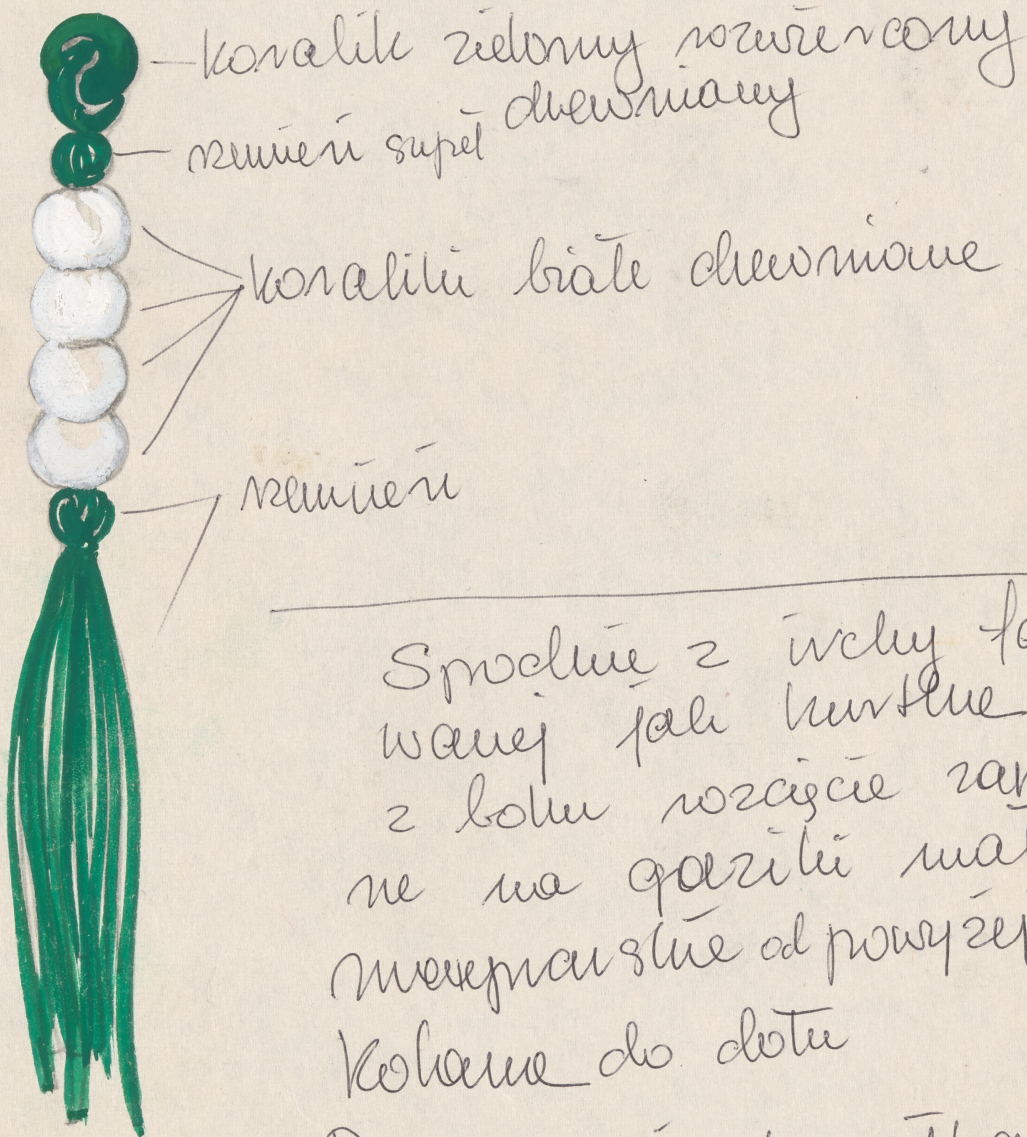 koralik zielony rozwiercony
drewniany
rzemień supeł
koraliki białe drewniane
rzemień
Spodnie z irchy
wanej jak kurtka
z boku rozcięcie
ne na guziki
marynarskie od powyżej
Kolana do dołu